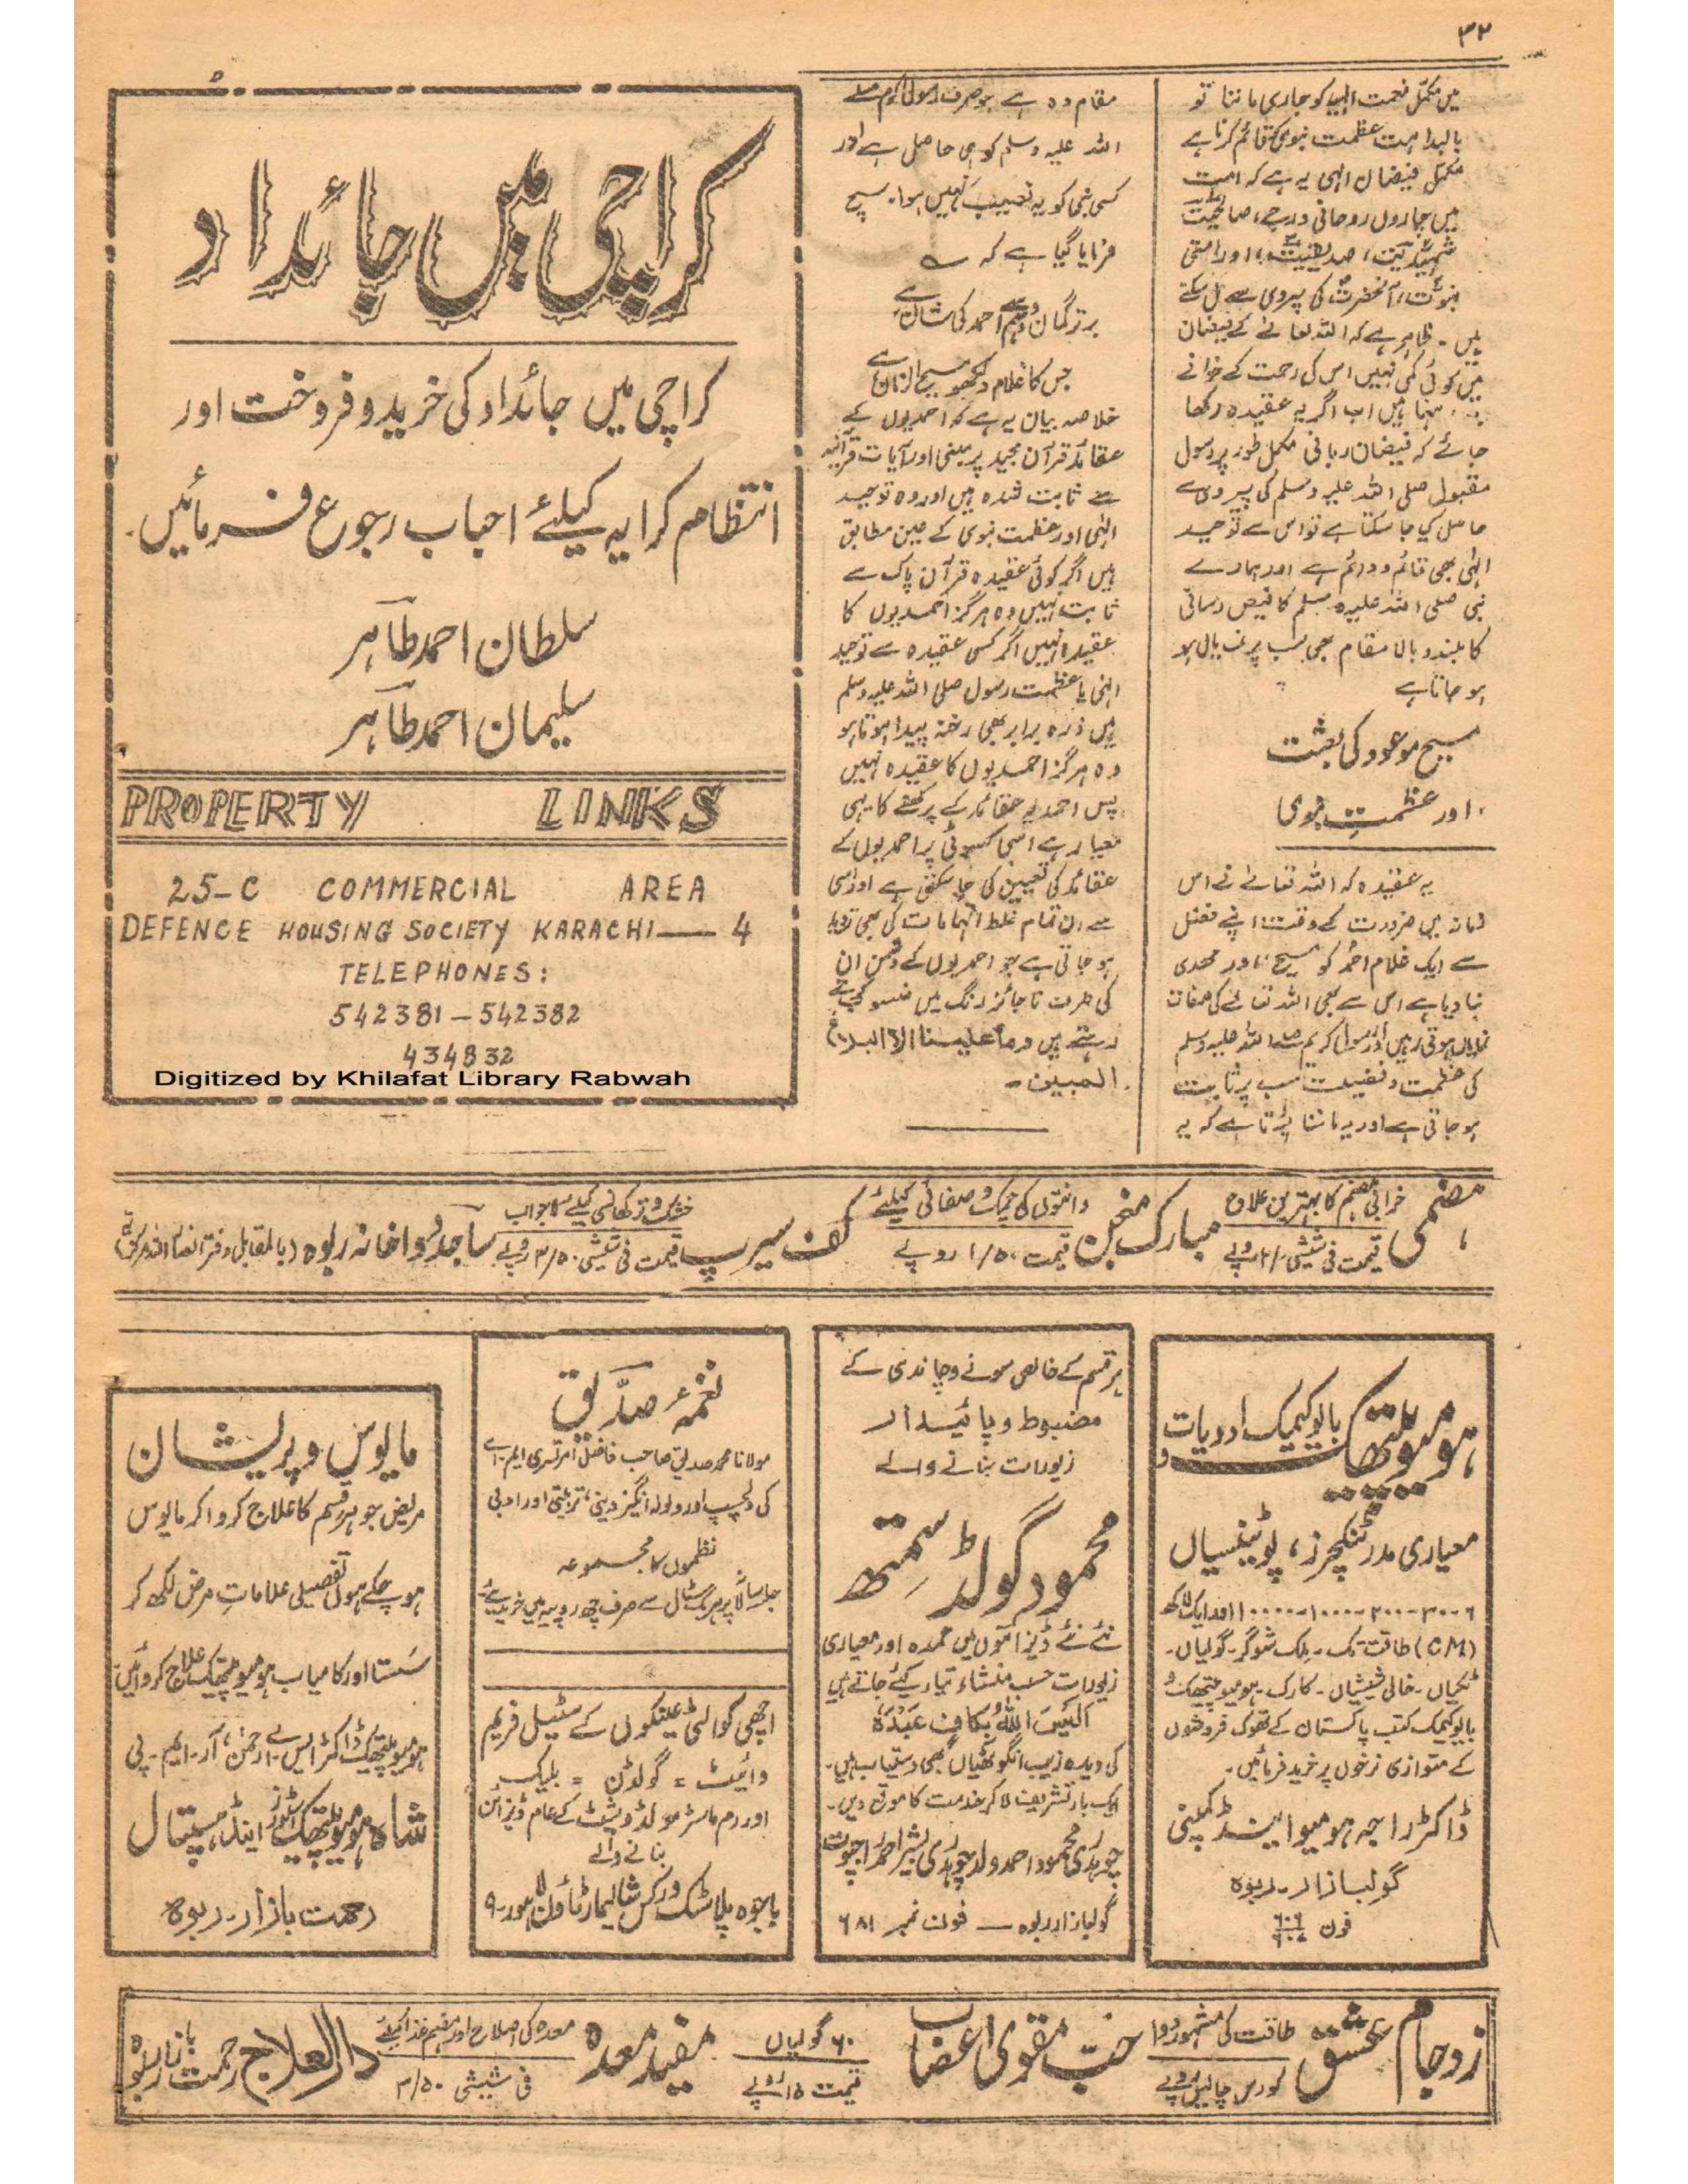 ۳۲
میں مکمل نعمت الہیہ کو جاری ماننا تو
بالبداہت عظمت نبوی کو قائم کرنا ہے
مکمل فیضان الہی یہ ہے کہ امت
میں چاروں روحانی درجے، صالحیت
شہیدیت، صدیقیت، اور امتی
نبوت، آنحضرتؐ کی پیروی سے مل سکتے
ہیں۔ ظاہر ہے کہ اللہ تعالےٰ کے فیضان
میں کوئی کمی نہیں اس کی رحمت کے خزانے
ہیں اب اگر یہ عقیدہ رکھا
جائے کہ فیضان ربانی مکمل طور پر رسول
مقبول صلی اللہ علیہ وسلم کی پیروی سے
حاصل کیا جا سکتا ہے تو اس سے توحید
الٰہی بھی قائم و دائم ہے اور ہمارے
نبی صلی اللہ علیہ وسلم کا فیض رسانی
کا بلند و بالا مقام بھی سب پر نمایاں
ہو جاتا ہے
مسیح موعود کی بعثت
اور عظمتِ نبوی
یہ عقیدہ کہ اللہ تعالےٰ نے اس
زمانہ میں ضرورت کے وقت اپنے فضل
سے ایک غلام احمدؐ کو مسیح محمدی
بنا دیا ہے اس سے بھی اللہ تعالےٰ کی صفات
نمایاں ہوتی ہیں اور رسول کریم صلے اللہ علیہ وسلم
کی عظمت و فضیلت سب پر ثابت
ہو جاتی ہے اور یہ ماننا پڑتا ہے کہ یہ
مقام وہ ہے جو صرف رسول اکرم صلے
اللہ علیہ وسلم کو ہی حاصل ہے اور
کسی نبی کو یہ نصیب نہیں ہوا۔ سچ
فرمایا گیا ہے کہ ؎
برتر گمان و وہم سے احمد کی شان ہے
جس کا غلام دیکھو مسیح الزمان ہے
خلاصہ بیان یہ ہے کہ احمدیوں کے
عقائد قرآن مجید پر مبنی اور آیات قرآنیہ
سے ثابت شدہ ہیں اور وہ توحید
الٰہی اور عظمت نبوی کے عین مطابق
ہیں اگر کوئی عقیدہ قرآن پاک سے
ثابت نہیں وہ ہرگز احمدیوں کا
عقیدہ نہیں اگر کسی عقیدہ سے توحید
الٰہی یا عظمت رسول صلی اللہ علیہ وسلم
میں ذرہ برابر بھی رخنہ پیدا ہوتا ہو
وہ ہرگز احمدیوں کا عقیدہ نہیں
پس احمدیہ عقائد کے پرکھنے کا یہی
معیار ہے اسی کسوٹی پر احمدیوں کے
عقائد کی تعیین کی جا سکتی ہے اور اسی
سے ان تمام غلط اتہامات کی بھی تردید
ہو جاتی ہے جو احمدیوں کے دشمن ان
کی طرف ناجائز رنگ میں منسوب کرتے
رہتے ہیں وما علینا الا البلاغ
المبین۔
کراچی میں جائداد
کراچی میں جائداد کی خرید و فروخت اور
انتظام کرایہ کیلئے احباب رجوع فرمائیں۔
سلطان احمد طاہر
سلیمان احمد طاہر
PROPERTY LINKS
25-C COMMERCIAL AREA
DEFENCE HOUSING SOCIETY KARACHI— 4
TELEPHONES:
542381 - 542382
434832
Digitized by Khilafat Library Rabwah
ہاضمی خرابی ہضم کا بہترین علاج قیمت فی شیشی روپے
مبارک منجن دانتوں کی چمک و صفائی کیلئے قیمت ۱/۵۰ روپے
کف سیرپ خشک و تر کھانسی کیلئے لاجواب قیمت فی شیشی ۳/۵۰ روپے
ساجد دواخانہ ربوہ (بالمقابل دفتر انصار اللہ مرکزیہ)
ہومیوپیتھک و بایوکیمک ادویات
معیاری مدر ٹنکچرز، پوٹینسیاں
۶-۳۰-۲۰۰-۱۰۰۰-۱۰۰۰۰ اور ایک لاکھ
(CM) طاقت تک۔ ملک شوگر۔ گولیاں۔
ٹکیاں۔ خالی شیشیاں۔ کارک۔ ہومیوپیتھک و
بایوکیمک کتب پاکستان کے تھوک فروشوں
کے متوازی نرخوں پر خرید فرمائیں۔
ڈاکٹر راجہ ہومیو اینڈ کمپنی
گولبازار۔ ربوہ
فون ۶۰۶
ہر قسم کے خالص سونے و چاندی کے
مضبوط و پائیدار
زیورات بنانے والے
محمود گولڈ سمتھ
نئے نئے ڈیزائنوں میں عمدہ اور معیاری
زیورات حسب منشاء تیار کئے جاتے ہیں
اَلَیْسَ اللّٰہُ بِکَافٍ عَبْدَہٗ
کی دیدہ زیب انگوٹھیاں بھی دستیاب ہیں۔
ایک بار تشریف لا کر خدمت کا موقع دیں۔
چوہدری محمود احمد ولد چوہدری بشیر احمد راجپوت
گولبازار ربوہ — فون نمبر ۶۸۱
نغمۂ صدیق
مولانا محمد صدیق صاحب فاضل امرتسری ایم۔اے
کی دلچسپ اور ولولہ انگیز دینی، تربیتی اور ادبی
نظموں کا مجموعہ
جلسہ سالانہ پر ہر بک سٹال سے صرف چھ روپیہ میں خریدیئے
اچھی کوالٹی عینکوں کے سٹیل فریم
وائیٹ = گولڈن = بلیک
اور رم ماسٹر مولڈ و شیٹ کے عام ڈیزائن
بنانے والے
باجوہ پلاسٹک ورکس شالیمار ٹاؤن لاہور۔۹
مایوس و پریشان
مریض جو ہر قسم کا علاج کروا کر مایوس
ہو چکے ہوں تفصیلی علاماتِ مرض لکھ کر
سستا اور کامیاب ہومیوپیتھک علاج کروائیں
ہومیوپیتھک ڈاکٹر ایس۔اے رحمٰن، آر۔ایم۔پی
شاہ ہومیوپیتھک سٹورز اینڈ ہسپتال
رحمت بازار۔ ربوہ
زوجام عشق طاقت کی مشہور دوا کورس چالیس روپے
حبّ مقوی اعضاب ۶۰ گولیاں قیمت ۱۵ روپے
مفید معدہ معدہ کی اصلاح اور ہضم غذا کیلئے فی شیشی ۳/۵۰
دارالعلاج رحمت بازار ربوہ